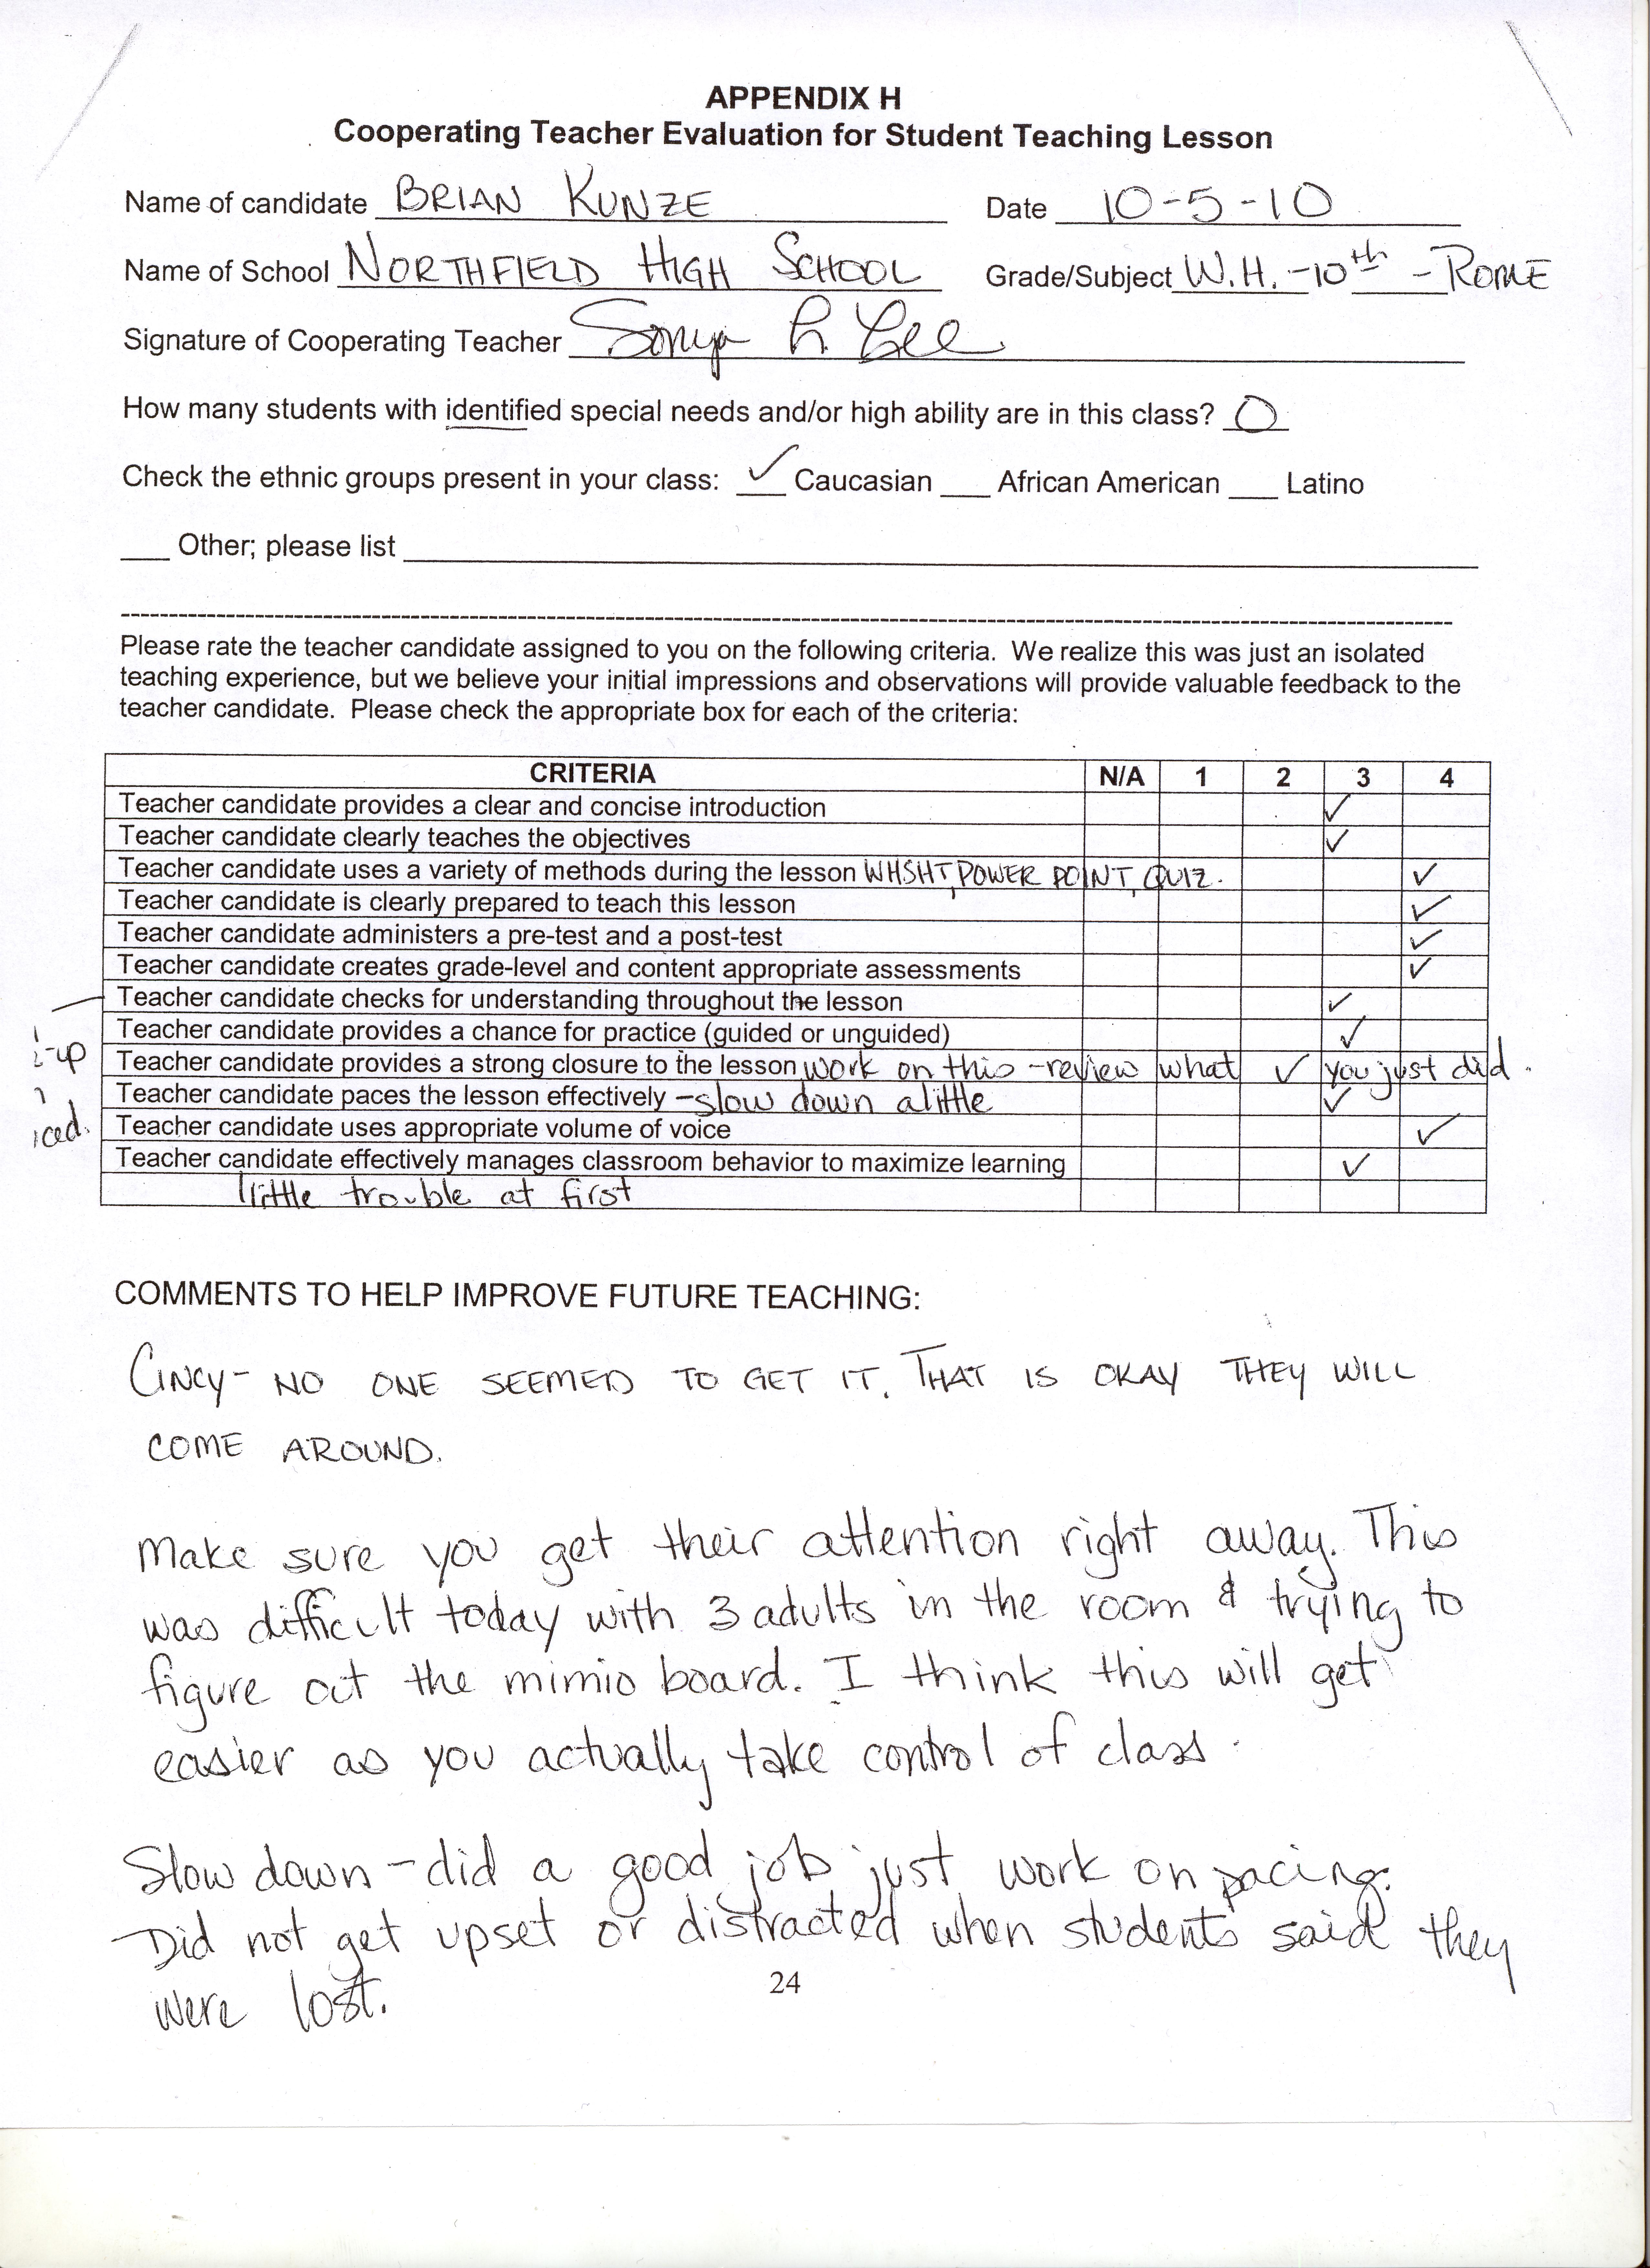 APPENDIX H
Cooperating Teacher Evaluation for Student Teaching Lesson
Name of candidate BRIAN KUNZE Date 10-5-10
Name of School NORTHFIELD HIGH SCHOOL Grade/Subject W.H. -10th - ROME
Signature of Cooperating Teacher Sonya L. Lee
How many students with identified special needs and/or high ability are in this class? 0
Check the ethnic groups present in your class: ✓ Caucasian ___ African American ___ Latino
___ Other; please list
Please rate the teacher candidate assigned to you on the following criteria. We realize this was just an isolated
teaching experience, but we believe your initial impressions and observations will provide valuable feedback to the
teacher candidate. Please check the appropriate box for each of the criteria:
CRITERIA N/A 1 2 3 4
Teacher candidate provides a clear and concise introduction ✓
Teacher candidate clearly teaches the objectives ✓
Teacher candidate uses a variety of methods during the lesson WHSHT, POWER POINT, QUIZ. ✓
Teacher candidate is clearly prepared to teach this lesson ✓
Teacher candidate administers a pre-test and a post-test ✓
Teacher candidate creates grade-level and content appropriate assessments ✓
Teacher candidate checks for understanding throughout the lesson ✓
Teacher candidate provides a chance for practice (guided or unguided) ✓
Teacher candidate provides a strong closure to the lesson work on this - review what ✓ you just did.
Teacher candidate paces the lesson effectively - slow down a little ✓
Teacher candidate uses appropriate volume of voice ✓
Teacher candidate effectively manages classroom behavior to maximize learning ✓
little trouble at first
COMMENTS TO HELP IMPROVE FUTURE TEACHING:
CINCY - NO ONE SEEMED TO GET IT. THAT IS OKAY THEY WILL
COME AROUND.
Make sure you get their attention right away. This
was difficult today with 3 adults in the room & trying to
figure out the mimio board. I think this will get
easier as you actually take control of class.
Slow down - did a good job just work on pacing.
Did not get upset or distracted when students said they
were lost.
24